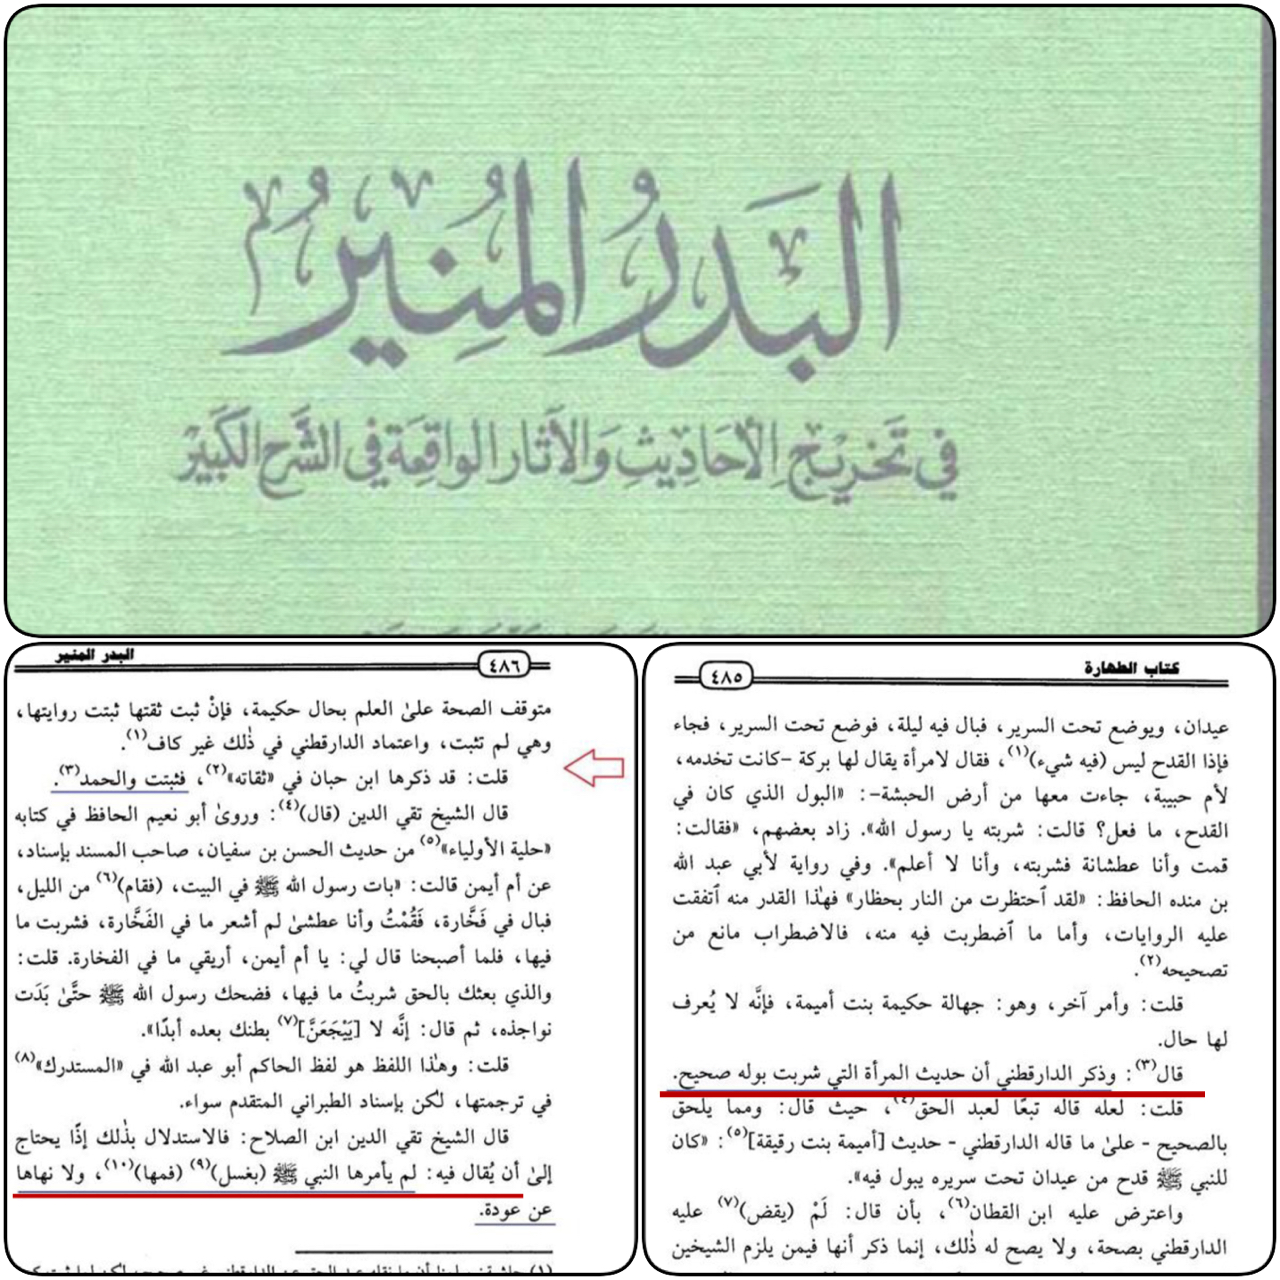 البَدرُ المُنِير
في تَخريجِ الأحَادِيثِ وَالآثار الواقِعَة في الشَّرح الكَبِير
كتاب الطهارة
٤٨٥
عيدان، ويوضع تحت السرير، فبال فيه ليلة، فوضع تحت السرير، فجاء
فإذا القدح ليس (فيه شيء)(١)، فقال لامرأة يقال لها بركة -كانت تخدمه،
لأم حبيبة، جاءت معها من أرض الحبشة-: «البول الذي كان في
القدح، ما فعل؟ قالت: شربته يا رسول الله». زاد بعضهم، «فقالت:
قمت وأنا عطشانة فشربته، وأنا لا أعلم». وفي رواية لأبي عبد الله
بن منده الحافظ: «لقد ٱحتظرت من النار بحظار» فهٰذا القدر منه ٱتفقت
عليه الروايات، وأما ما ٱضطربت فيه منه، فالاضطراب مانع من
تصحيحه(٢).
قلت: وأمر آخر، وهو: جهالة حكيمة بنت أميمة، فإنَّه لا يُعرف
لها حال.
قال(٣): وذكر الدارقطني أن حديث المرأة التي شربت بوله صحيح.
قلت: لعله قاله تبعًا لعبد الحق(٤)، حيث قال: ومما يلحق
بالصحيح - علىٰ ما قاله الدارقطني - حديث [أميمة بنت رقيقة](٥): «كان
للنبي ﷺ قدح من عيدان تحت سريره يبول فيه».
واعترض عليه ابن القطان(٦)، بأن قال: لَمْ (يقض)(٧) عليه
الدارقطني بصحة، ولا يصح له ذٰلك، إنما ذكر أنها فيمن يلزم الشيخين
البدر المنير
٤٨٦
متوقف الصحة علىٰ العلم بحال حكيمة، فإنْ ثبت ثقتها ثبتت روايتها،
وهي لم تثبت، واعتماد الدارقطني في ذٰلك غير كاف(١).
قلت: قد ذكرها ابن حبان في «ثقاته»(٢)، فثبتت والحمد(٣).
قال الشيخ تقي الدين (قال)(٤): وروىٰ أبو نعيم الحافظ في كتابه
«حلية الأولياء»(٥) من حديث الحسن بن سفيان، صاحب المسند بإسناد،
عن أم أيمن قالت: «بات رسول الله ﷺ في البيت، (فقام)(٦) من الليل،
فبال في فَخَّارة، فَقُمْتُ وأنا عطشىٰ لم أشعر ما في الفَخَّارة، فشربت ما
فيها، فلما أصبحنا قال لي: يا أم أيمن، أريقي ما في الفخارة. قلت:
والذي بعثك بالحق شربتُ ما فيها، فضحك رسول الله ﷺ حتَّىٰ بَدَت
نواجذه، ثم قال: إنَّه لا [يَيْجَعَنَّ](٧) بطنك بعده أبدًا».
قلت: وهٰذا اللفظ هو لفظ الحاكم أبو عبد الله في «المستدرك»(٨)
في ترجمتها، لٰكن بإسناد الطبراني المتقدم سواء.
قال الشيخ تقي الدين ابن الصلاح: فالاستدلال بذٰلك إذًا يحتاج
إلىٰ أن يُقال فيه: لم يأمرها النبي ﷺ (بغسل)(٩) (فمها)(١٠)، ولا نهاها
عن عودة.